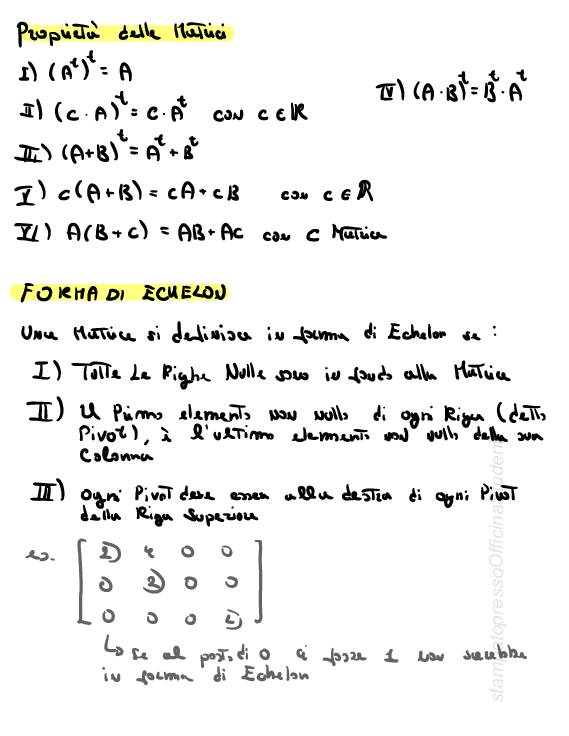 Proprietà delle Matrici
I) (Aᵗ)ᵗ = A
IV) (A · B)ᵗ = Bᵗ · Aᵗ
II) (c · A)ᵗ = c · Aᵗ con c ∈ ℝ
III) (A+B)ᵗ = Aᵗ + Bᵗ
V) c(A+B) = cA + cB con c ∈ ℝ
VI) A(B+C) = AB + AC con C Matrice
FORMA DI ECHELON
Una Matrice si definisce in forma di Echelon se :
I) Tutte Le Righe Nulle sono in fondo alla Matrice
II) Il Primo elemento non nullo di ogni Riga (detto
Pivot), è l'ultimo elemento non nullo della sua
Colonna
III) Ogni Pivot deve essere alla destra di ogni Pivot
della Riga Superiore
es.
4 0 0
0 2 0 0
0 0 0
↳ se al posto di 0 ci fosse 1 non sarebbe
in forma di Echelon